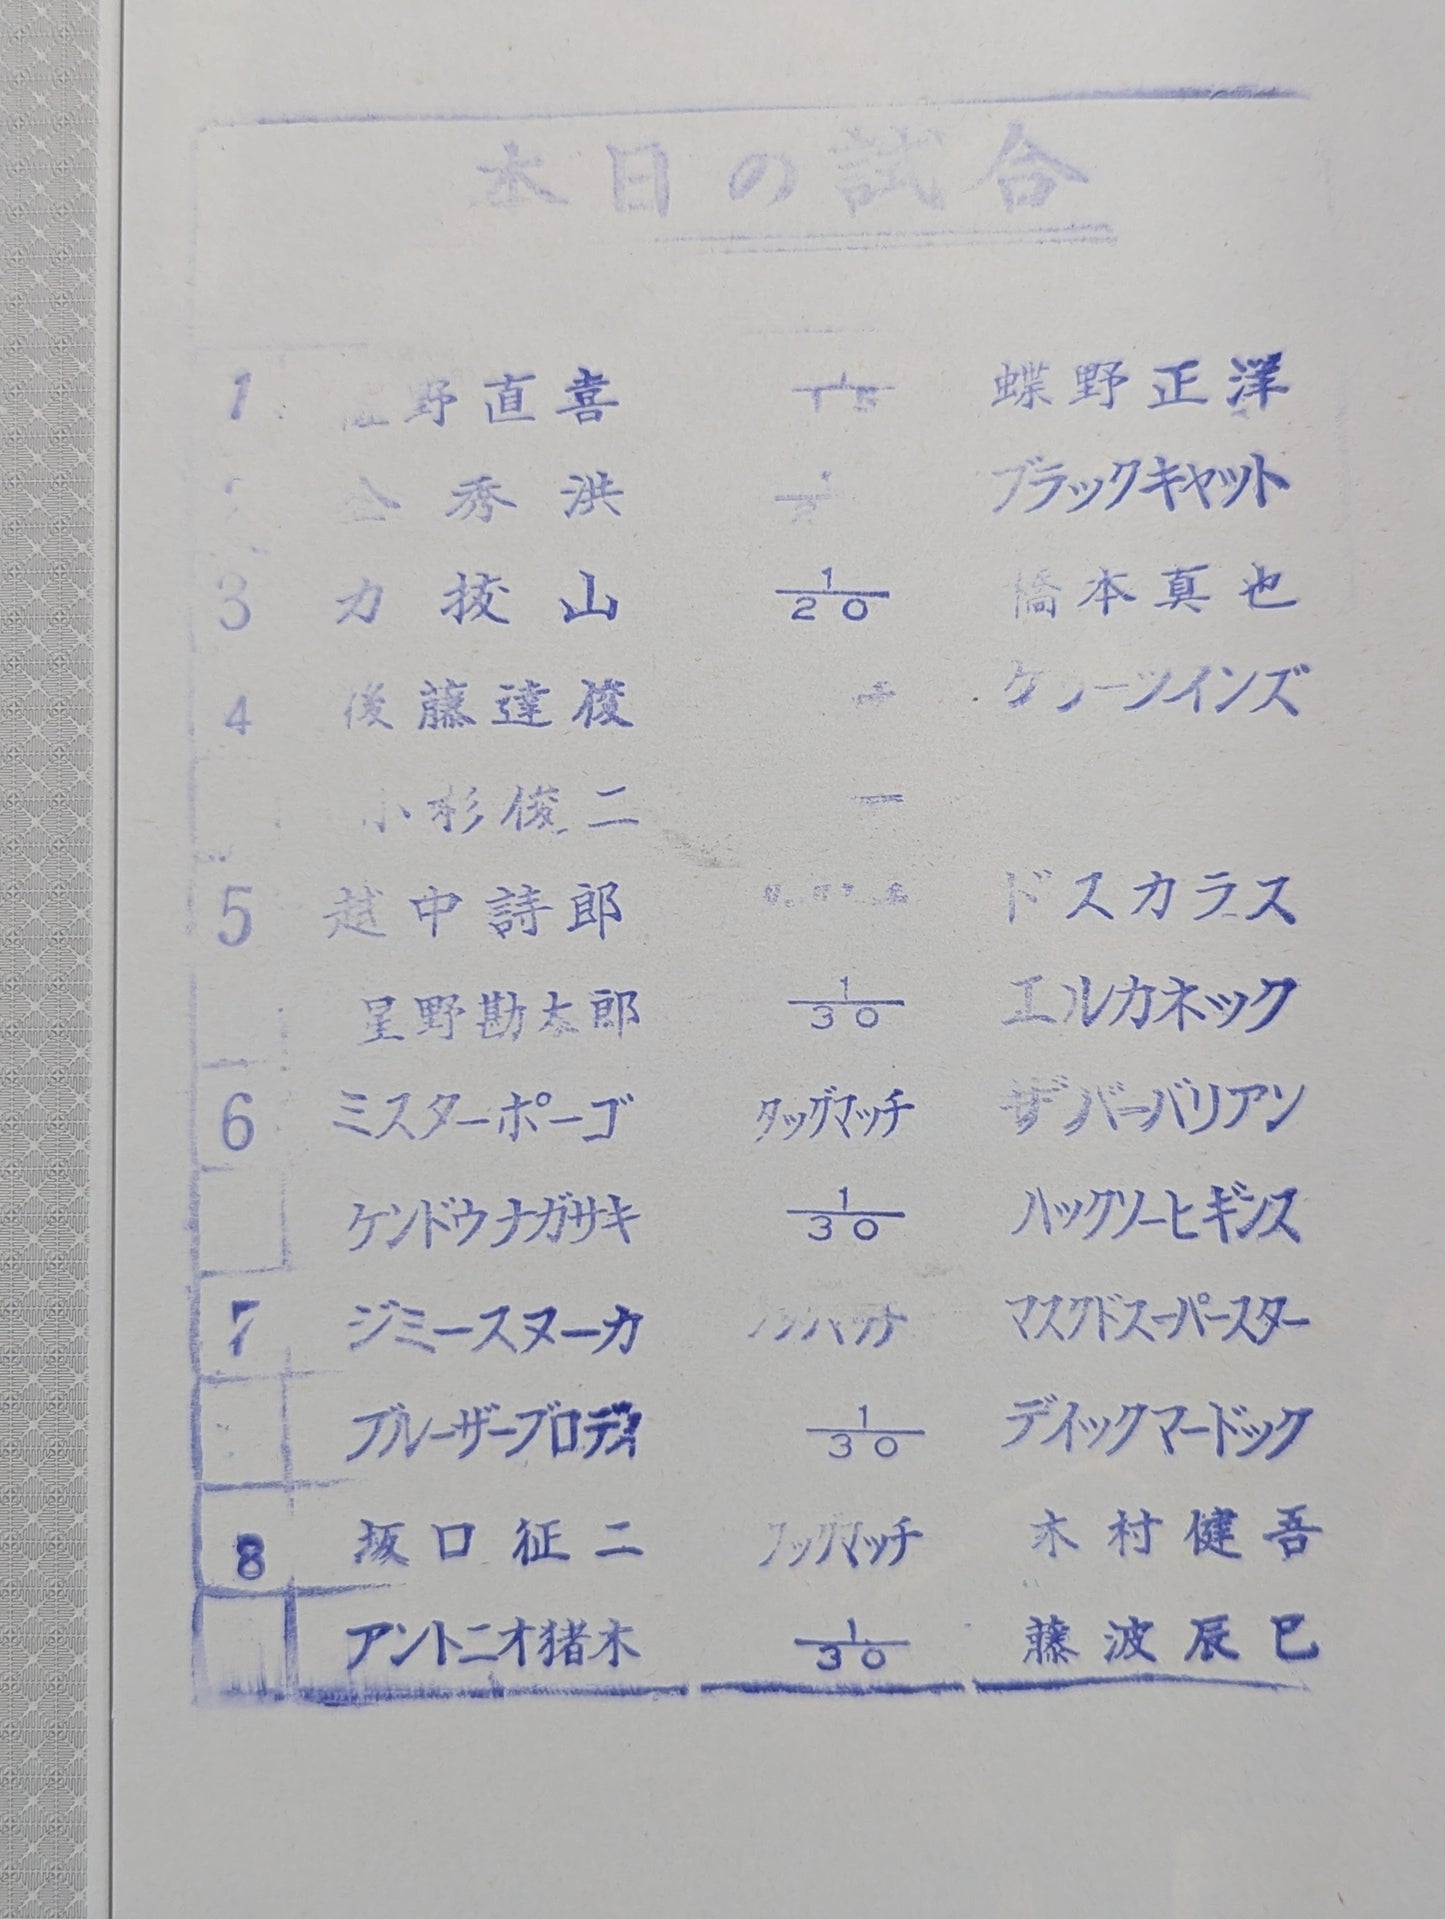 本日の試合
1 野直喜 1/15 蝶野正洋
秀洪 ブラックキャット
3 力抜山 1/20 橋本真也
4 後藤達俊 ケリーツインズ
小杉俊二
5 越中詩郎 ドスカラス
星野勘太郎 1/30 エルカネック
6 ミスターポーゴ タッグマッチ ザバーバリアン
ケンドウナガサキ 1/30 ハックソーヒギンス
7 ジミースヌーカ マスクドスーパースター
ブルーザーブロディ 1/30 デイックマードック
8 坂口征二 タッグマッチ 木村健吾
アントニオ猪木 1/30 藤波辰巳